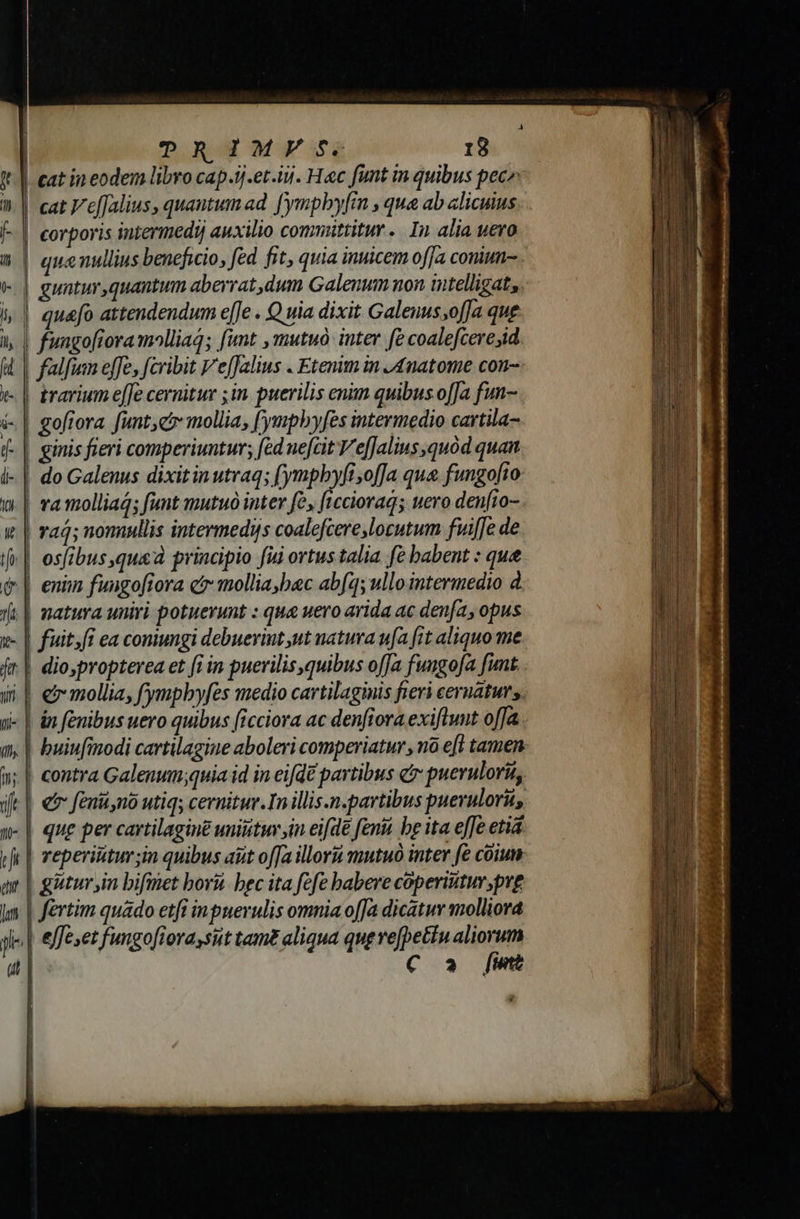 PRIMVS. 18
cat in eodem libro cap.ij.et.iij. Hæc ſunt in quibus pec⸗
cat Veſſalius, quantum ad ſymphyſin, quæ ab alicuius
corporis intermedij auxilio committitur. In alia uero
quæ nullius beneficio, ſed fit, quia inuicem oſſa coniun-
guntur, quantum aberrat, dum Galenum non intelligat,
quæſo attendendum eſſe. Quia dixit Galenus, oſſa quę
fungoſiora molliaq; ſunt, mutuò inter ſe coaleſcere, id
falſum eſſe, ſcribit Veſſalius. Etenim in Anatome con-
trarium eſſe cernitur; in puerilis enim quibus oſſa fun-
goſiora ſunt, & mollia, ſymphyſes intermedio cartila-
ginis fieri comperiuntur; ſed neſcit Veſſalius, quòd quan
do Galenus dixit in utraq; ſymphyſi, oſſa quæ fungoſio
ra molliaq́; ſunt mutuò inter ſe, ſiccioraq́; uero denſio-
raq́; nonnullis intermedijs coaleſcere, locutum fuiſſe de
osſibus, quæ à principio ſui ortus talia ſe habent: quæ
enim fungoſiora & mollia, hæc abſq; ullo intermedio à
natura uniri potuerunt: quæ uero arida ac denſa, opus
fuit, ſi ea coniungi debuerint, ut natura uſa ſit aliquo me
dio, propterea et ſi in puerilis, quibus oſſa fungoſa ſunt
& mollia, ſymphyſes medio cartilaginis fieri cernatur,
in ſenibus uero quibus ſicciora ac denſiora exiſtunt oſſa
huiuſmodi cartilagine aboleri comperiatur, nō eſt tamen
contra Galenum; quia id in eiſdē partibus & puerulorū,
& ſenū, nō utiq; cernitur. In illis.n. partibus puerulorū,
quę per cartilaginē uniūtur, in eiſdē ſenū hę ita eſſe etiā
reperiūtur; in quibus aūt oſſa illorū mutuò inter ſe cōiun
gūtur, in hiſmet horū hęc ita ſeſe habere cōperiūtur, prę
ſertim quādo etſi in puerulis omnia oſſa dicātur molliora
eſſe, et fungoſiora, sūt tamē aliqua quę reſpectu aliorum
C 2 ſunt